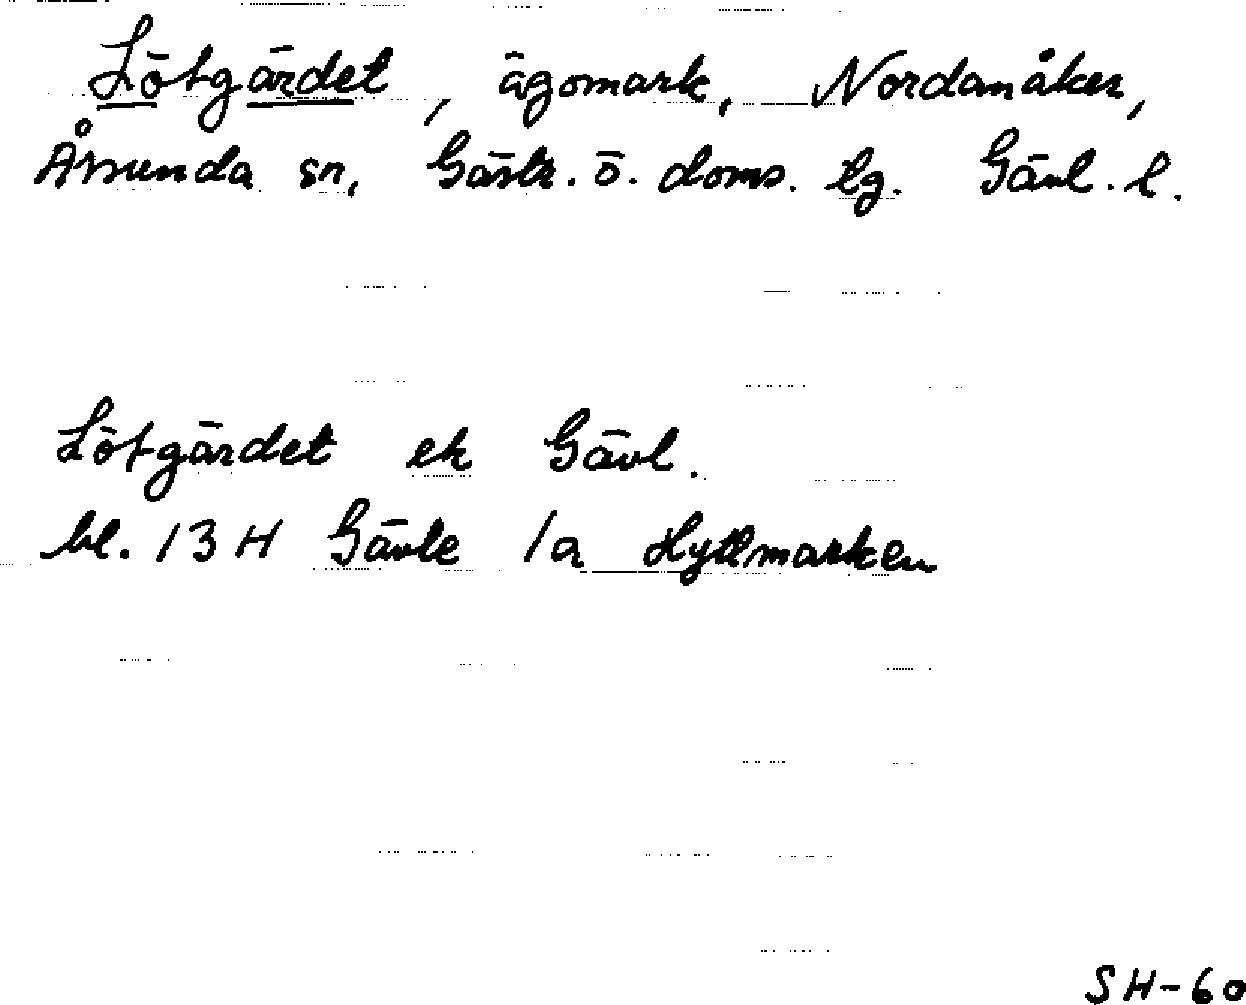 Lötgärdet, ägomark, Nordanåker,
Årsunda sn, Gästr. ö. doms. lg. Gävl. l.
Lötgärdet ek Gävl.
bl. 13H Gävle 1a Hyttmarken
SH-60